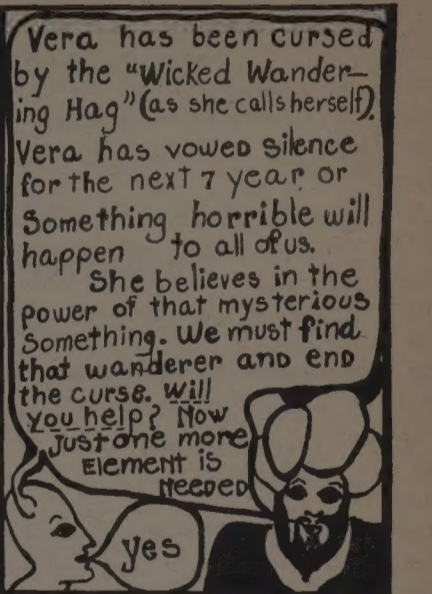 Vera has been cursed
by the "Wicked Wander-
ing Hag" (as she calls herself).
Vera has vowed silence
for the next 7 year or
Something horrible will
happen to all of us.
She believes in the
power of that mysterious
Something. We must find
that wanderer and end
the curse. Will
you help? Now
just one more
Element is
Needed
yes